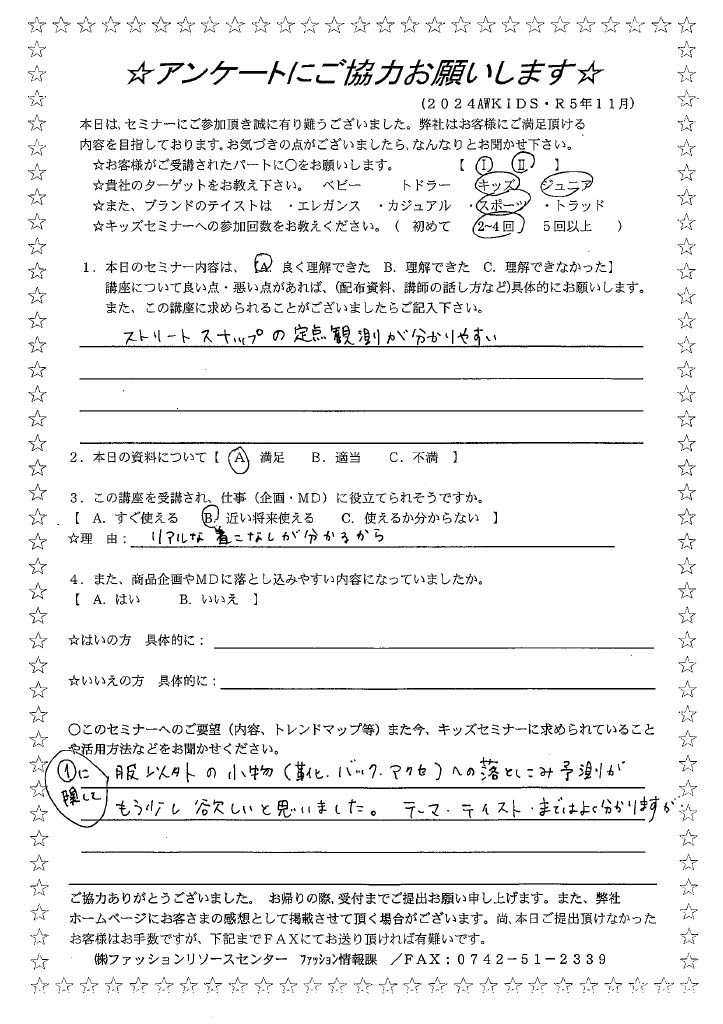 ☆アンケートにご協力お願いします☆
(2024AWKIDS・R5年11月)
本日は、セミナーにご参加頂き誠に有り難うございました。弊社はお客様にご満足頂ける
内容を目指しております。お気づきの点がございましたら、なんなりとお聞かせ下さい。
☆お客様がご受講されたパートに○をお願いします。 【 Ⅰ Ⅱ 】
☆貴社のターゲットをお教え下さい。 ベビー トドラー キッズ ジュニア
☆また、ブランドのテイストは ・エレガンス ・カジュアル ・スポーツ ・トラッド
☆キッズセミナーへの参加回数をお教えください。( 初めて 2~4回 5回以上 )
1．本日のセミナー内容は、【A. 良く理解できた B. 理解できた C. 理解できなかった】
講座について良い点・悪い点があれば、(配布資料、講師の話し方など)具体的にお願いします。
また、この講座に求められることがございましたらご記入下さい。
ストリートスナップの定点観測が分かりやすい
2．本日の資料について【 A 満足 B．適当 C．不満 】
3．この講座を受講され、仕事（企画・MD）に役立てられそうですか。
【 A. すぐ使える B. 近い将来使える C. 使えるか分からない 】
☆理 由： リアルな着こなしが分かるから
4．また、商品企画やMDに落とし込みやすい内容になっていましたか。
【 A. はい B. いいえ 】
☆はいの方 具体的に：
☆いいえの方 具体的に：
○このセミナーへのご要望（内容、トレンドマップ等）また今、キッズセミナーに求められていること
や活用方法などをお聞かせください。
①に
関して
服以外の小物(靴・バック・アクセ)への落としこみ予測が
もう少し欲しいと思いました。 テーマ・テイスト・まではよく分かりますが
ご協力ありがとうございました。 お帰りの際、受付までご提出お願い申し上げます。また、弊社
ホームページにお客さまの感想として掲載させて頂く場合がございます。尚、本日ご提出頂けなかった
お客様はお手数ですが、下記までFAXにてお送り頂ければ有難いです。
㈱ファッションリソースセンター ﾌｧｯｼｮﾝ情報課 ／FAX：0742-51-2339